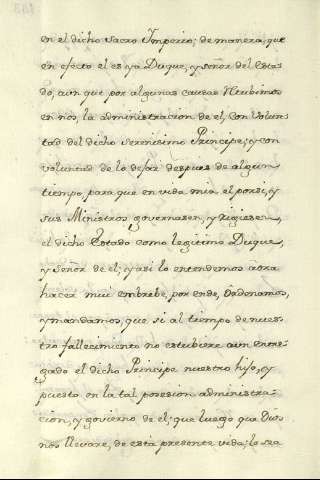 en el dicho Sacro Imperio; de manera, que
en efecto el es ya Duque, y señor del Esta-
do, aun que por algunas causas retubimos
en nos, la administracion de el, con volun-
tad del dicho serenissimo Principe; y con
voluntad de lo dejar despues de algun
tiempo, para que en vida mia el por si, y
sus Ministros governasen, y rigiesen,
el dicho Estado como legitimo Duque,
y Señor de el; y asi lo entendemos aora
hacer mui embrebe, por ende, Ordenamos,
y mandamos, que si al tiempo de nues-
tro fallecimiento no estubiere aun entre-
gado el dicho Principe nuestro hijo, y
puesto en la tal posesion administra-
cion, y govierno de el; que luego que Dios
nos llevare, de esta presente vida; lo sea